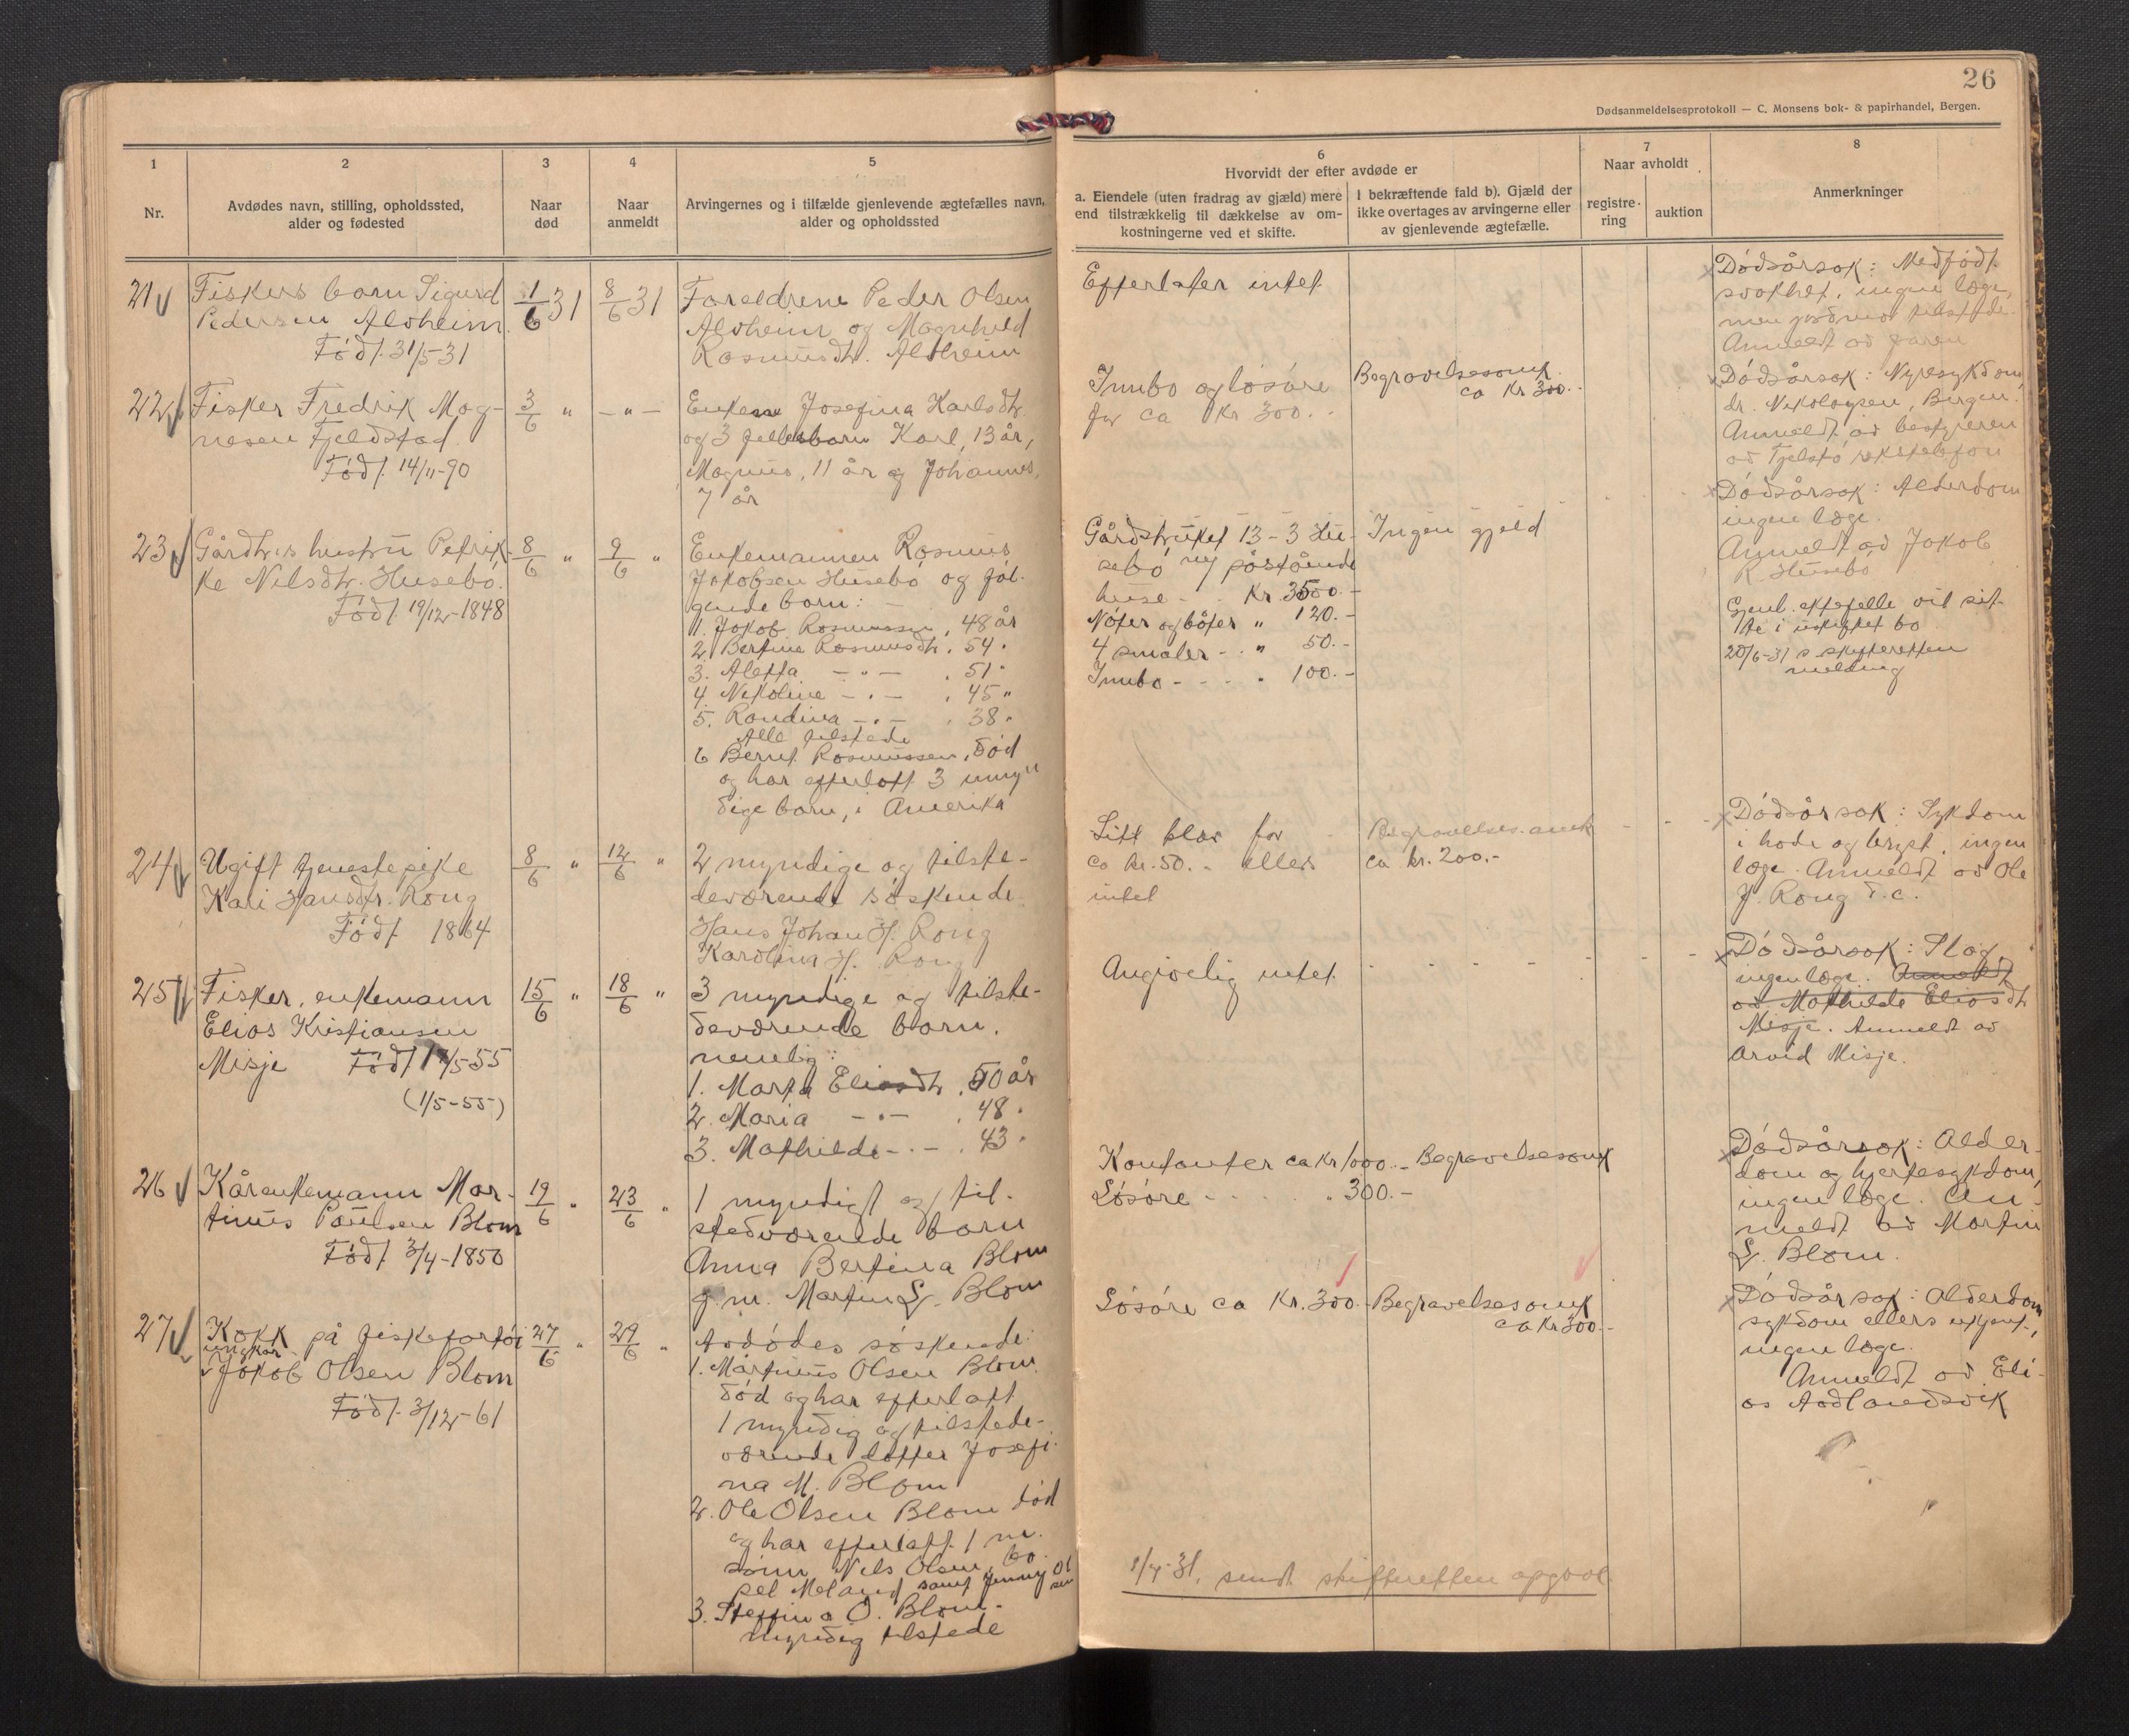 26
Dødsanmeldelsesprotokoll — C. Monsens bok- & papirhandel, Bergen.
1
Nr.
2
Avdødes navn, stilling, opholdssted,
alder og fødested
3
Naar
død
4
Naar
anmeldt
5
Arvingernes og i tilfælde gjenlevende ægtefælles navn,
alder og opholdssted
6
Hvorvidt der efter avdøde er
a. Eiendele (uten fradrag av gjæld) mere
end tilstrækkelig til dækkelse av om-
kostningerne ved et skifte.
I bekræftende fald b). Gjæld der
ikke overtages av arvingerne eller
av gjenlevende ægtefælle.
7
Naar avholdt
registre-
ring
auktion
8
Anmerkninger
21
Fiskers barn Sigurd
Pedersen Alvheim.
Født 31/5-31
1/6 31
8/6 31
Foreldrene Peder Olsen
Alvheim og Magnhild
Rasmusdtr. Alvheim
Efterlater intet
Dødsårsak: Medfødt
svakhet, ingen læge,
men jordmor tilstede.
Anmeldt av faren
22
Fisker Fredrik Mag-
nesen Fjeldstad.
Født 14/11-90
3/6 "
- " -
Enken Josefina Karlsdtr.
og 3 fellesbarn Karl, 13 år,
Magnus, 11 år og Johannes,
7 år
Innbo og løsøre
for ca kr 300.-
Begravelsesomk.
ca kr 300.-
Dødsårsak: Nyresykdom
dr. Nikolaysen, Bergen.
Anmeldt av bestyreren
av Fjelstø rikstelefon
23
Gårdbr.s hustru Petrik-
ke Nilsdtr. Husebø.
Født 19/12-1848
8/6 "
9/6 "
Enkemannen Rasmus
Jakobsen Husebø og føl-
gende barn:
1. Jakob Rasmussen, 48 år
2. Bertine Rasmusdtr. 54 "
3. Aletta - " - . 51 "
4. Nikoline - " - . 45 "
5. Randina - " - . 38 "
Alle tilstede
6 Bernt Rasmussen, død
og har efterlatt 3 umyn
dige barn, i Amerika
Gårdsbruket 13-3 Hu-
sebø m/ påstående
huse - - kr 3500.-
Nøter og båter " 120.-
4 smaler - - " 50.-
Innbo - - - - " 100.-
Ingen gjeld
Dødsårsak: Alderdom
ingen læge.
Anmeldt av Jakob
R. Husebø
Gjenl. ektefelle vil sit-
te i uskiftet bo
20/6-31 s skifteretten
melding
24
Ugift tjenestepike
Kari Hansdtr. Rong
Født 1864
8/6 "
12/6 "
2 myndige og tilste-
deværende søskende
Hans Johan H. Rong
Karolina H. Rong
Litt klær for
ca kr. 50.- ellers
intet
Begravelses.omk
ca kr. 200.-
Dødsårsak: Sykdom
i hode og bryst, ingen
læge. Anmeldt av Ole
J. Rong d.e.
25
Fisker, enkemann
Elias Kristiansen
Misje Født 17/5-55
(1/5-55)
15/6 "
18/6 "
3 myndige og tilste-
deværende barn,
nemlig:
1. Marta Eliasdtr. 50 år
2. Maria - " - . 48 "
3. Mathilde - " - . 43 "
Angivelig intet
Dødsårsak: Slag,
ingen læge. Anmeldt
av Mathilde Eliasdtr
Misje. Anmeldt av
Arvid Misje.
26
Kårenkemann Mar-
tinus Paulsen Blom
Født 3/4-1850
19/6 "
23/6 "
1 myndigt og til-
stedværende barn
Anna Bertina Blom
g.m. Martin L. Blom
Kontanter ca kr 1000.-
Løsøre - - - " 300.-
Begravelsesomk
Dødsårsak: Alder-
dom og hjertesykdom,
ingen læge. An-
meldt av Martin
L. Blom.
27
Kokk på fiskefartøi
ungkar
Jakob Olsen Blom
Født 3/12-61
27/6 "
29/6 "
Avdødes søskende:
1. Martinus Olsen Blom
død og har efterlatt
1 myndig og tilstede-
værende datter Josefi-
na M. Blom
2. Ole Olsen Blom død
og har efterlatt 1 m.
sønn Nils Olsen, bo-
sat Meland samt Jenny Ol
sen
3. Steffina O. Blom-
myndig tilstede
Løsøre ca kr. 300.-
Begravelsesomk
ca kr 300.-
Dødsårsak: Alderdom
sykdom ellers ukjent,
ingen læge.
Anmeldt av Eli-
as Aadlandsvik
1/7-31. sendt skifteretten opgave